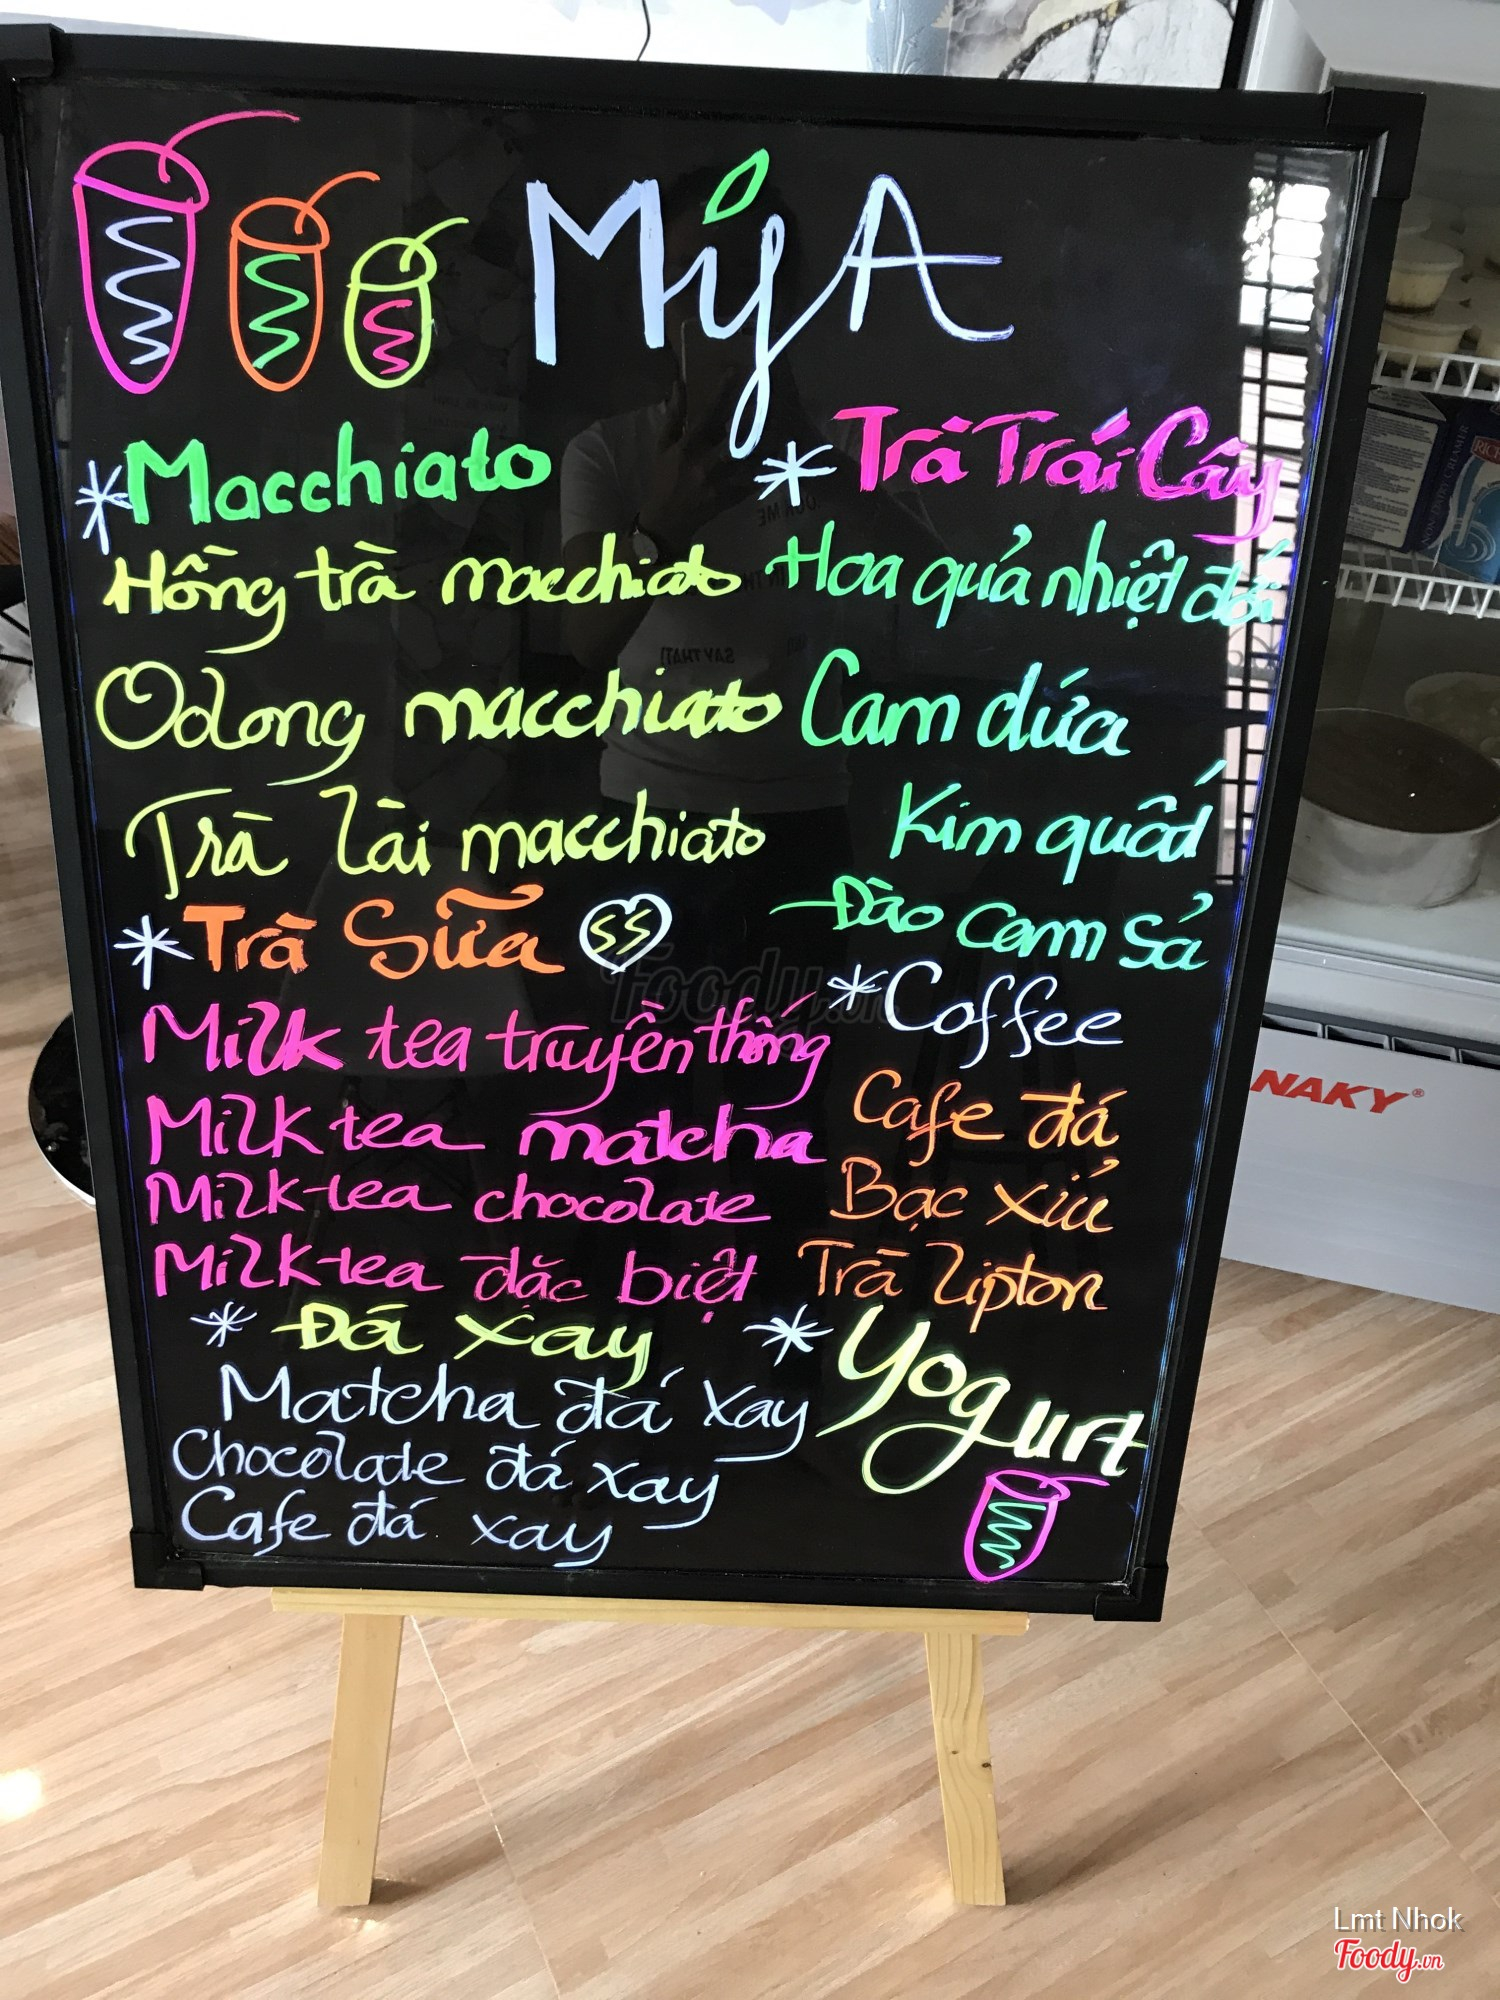 MýA
* Macchiato
Hồng trà macchiato
Odong macchiato
Trà lài macchiato
* Trà Sữa SS
Milk tea truyền thống
Milk tea matcha
Milk tea chocolate
Milk tea đặc biệt
* Đá xay
Matcha đá xay
Chocolate đá xay
Cafe đá xay
* Trà Trái Cây
Hoa quả nhiệt đới
Cam dứa
Kim quất
Đào cam sả
* Coffee
Cafe đá
Bạc xỉu
Trà lipton
* Yogurt
NAKY®
RICH
NON-DAIRY CREAMER
SAY THAT)
Foody.vn
Lmt Nhok
Foody.vn